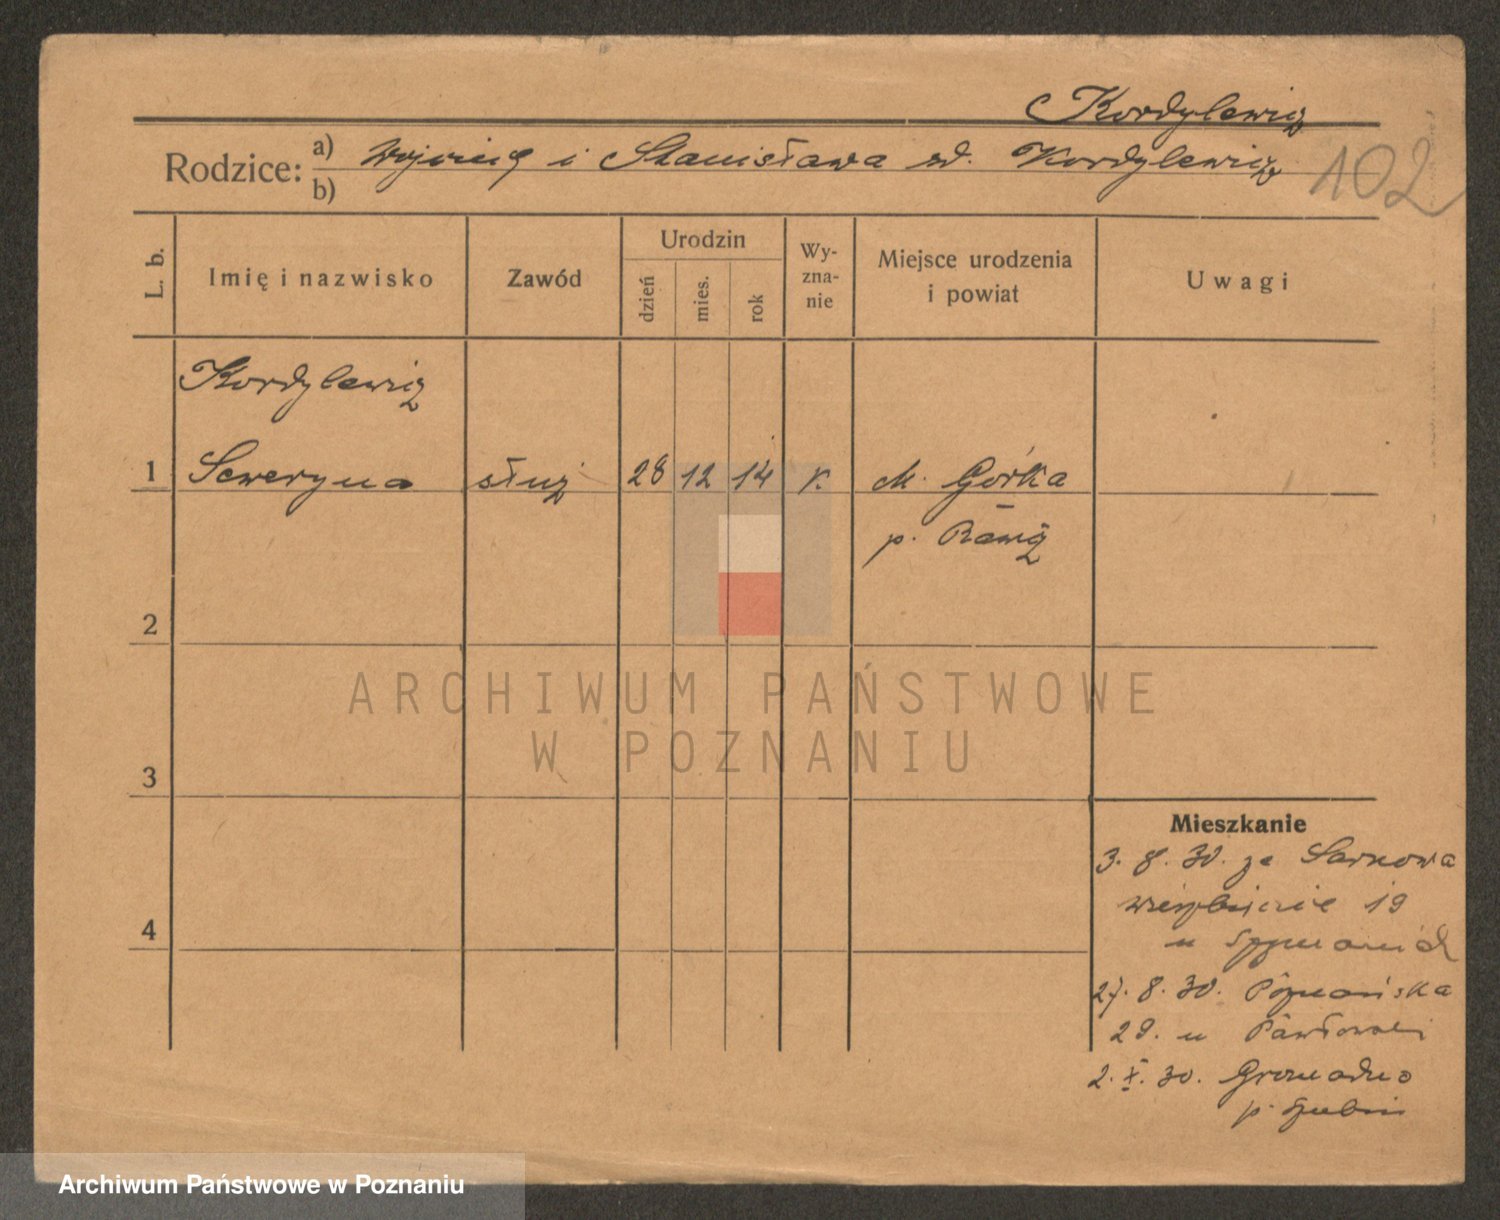 Kordylewicz
Rodzice: a) Wojciech i Stanisława zd. Kordylewicz
b)
102
L. b.
Imię i nazwisko
Zawód
Urodzin
dzień
mies.
rok
Wy-
zna-
nie
Miejsce urodzenia
i powiat
Uwagi
Kordylewicz
1 Seweryna służ 28 12 14 k. M. Górka
p. Rawicz
2
3
4
ARCHIWUM PAŃSTWOWE
W POZNANIU
Mieszkanie
3. 8. 30. ze Sarnowa
19
u
27. 8. 30. Poznańska
29. u
2. X. 30. Gromadno
p. Szubin
Archiwum Państwowe w Poznaniu